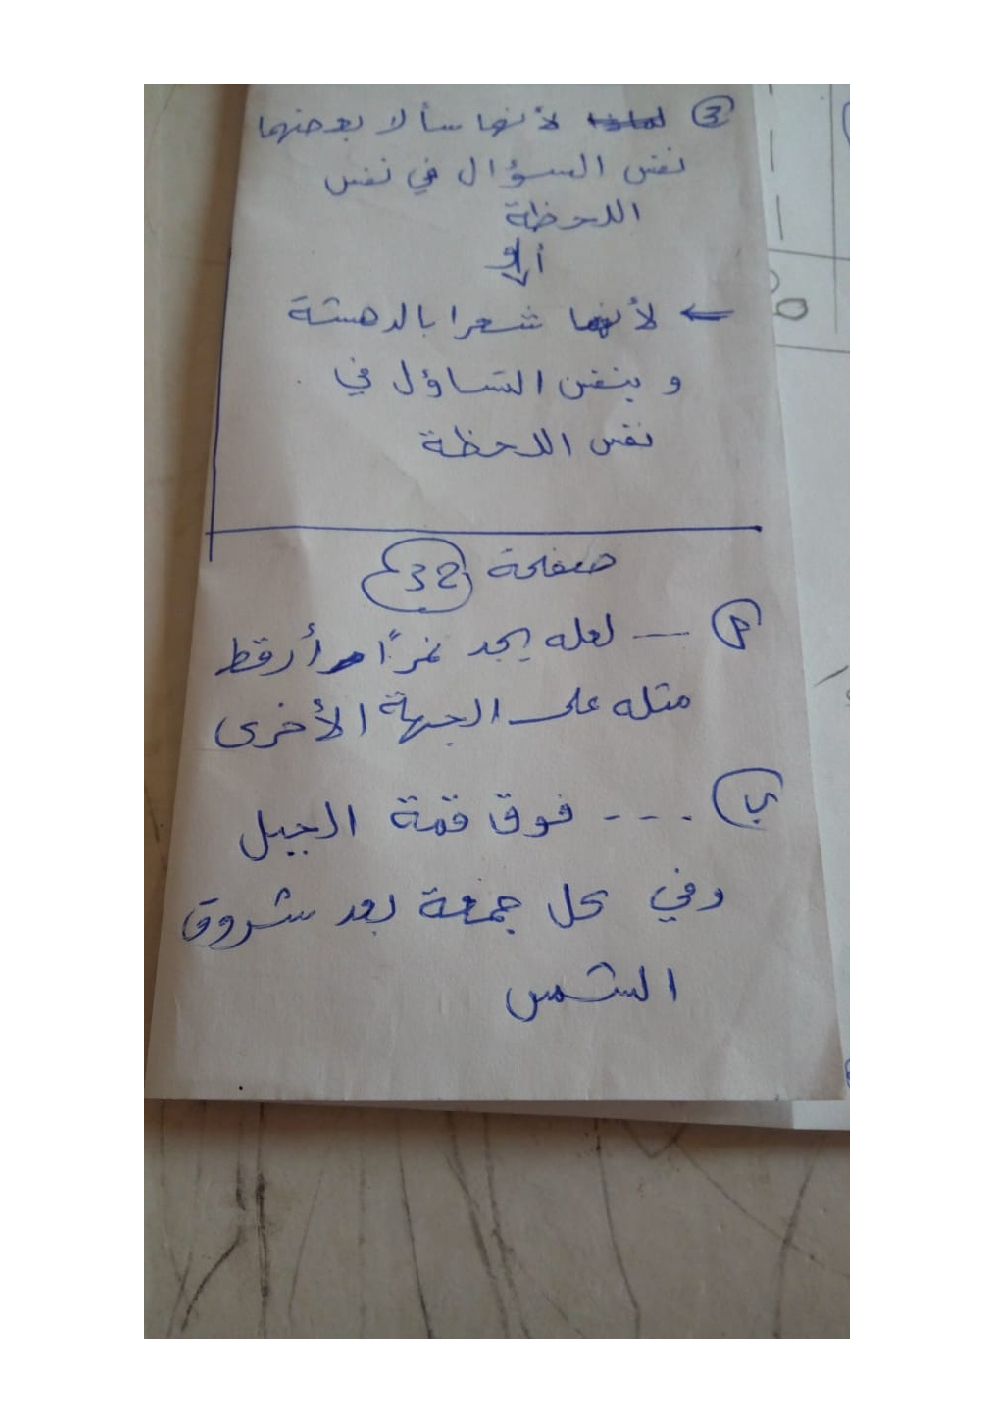 ③ لأنهما سألا بعضهما
نفس السؤال في نفس
اللحظة
أو
← لأنهما شعرا بالدهشة
و بنفس التساؤل في
نفس اللحظة
صفحة 32
م — لعله يجد نمرًا أرقط
مثله على الجهة الأخرى
ب ... فوق قمة الجبل
وفي كل جمعة بعد شروق
الشمس